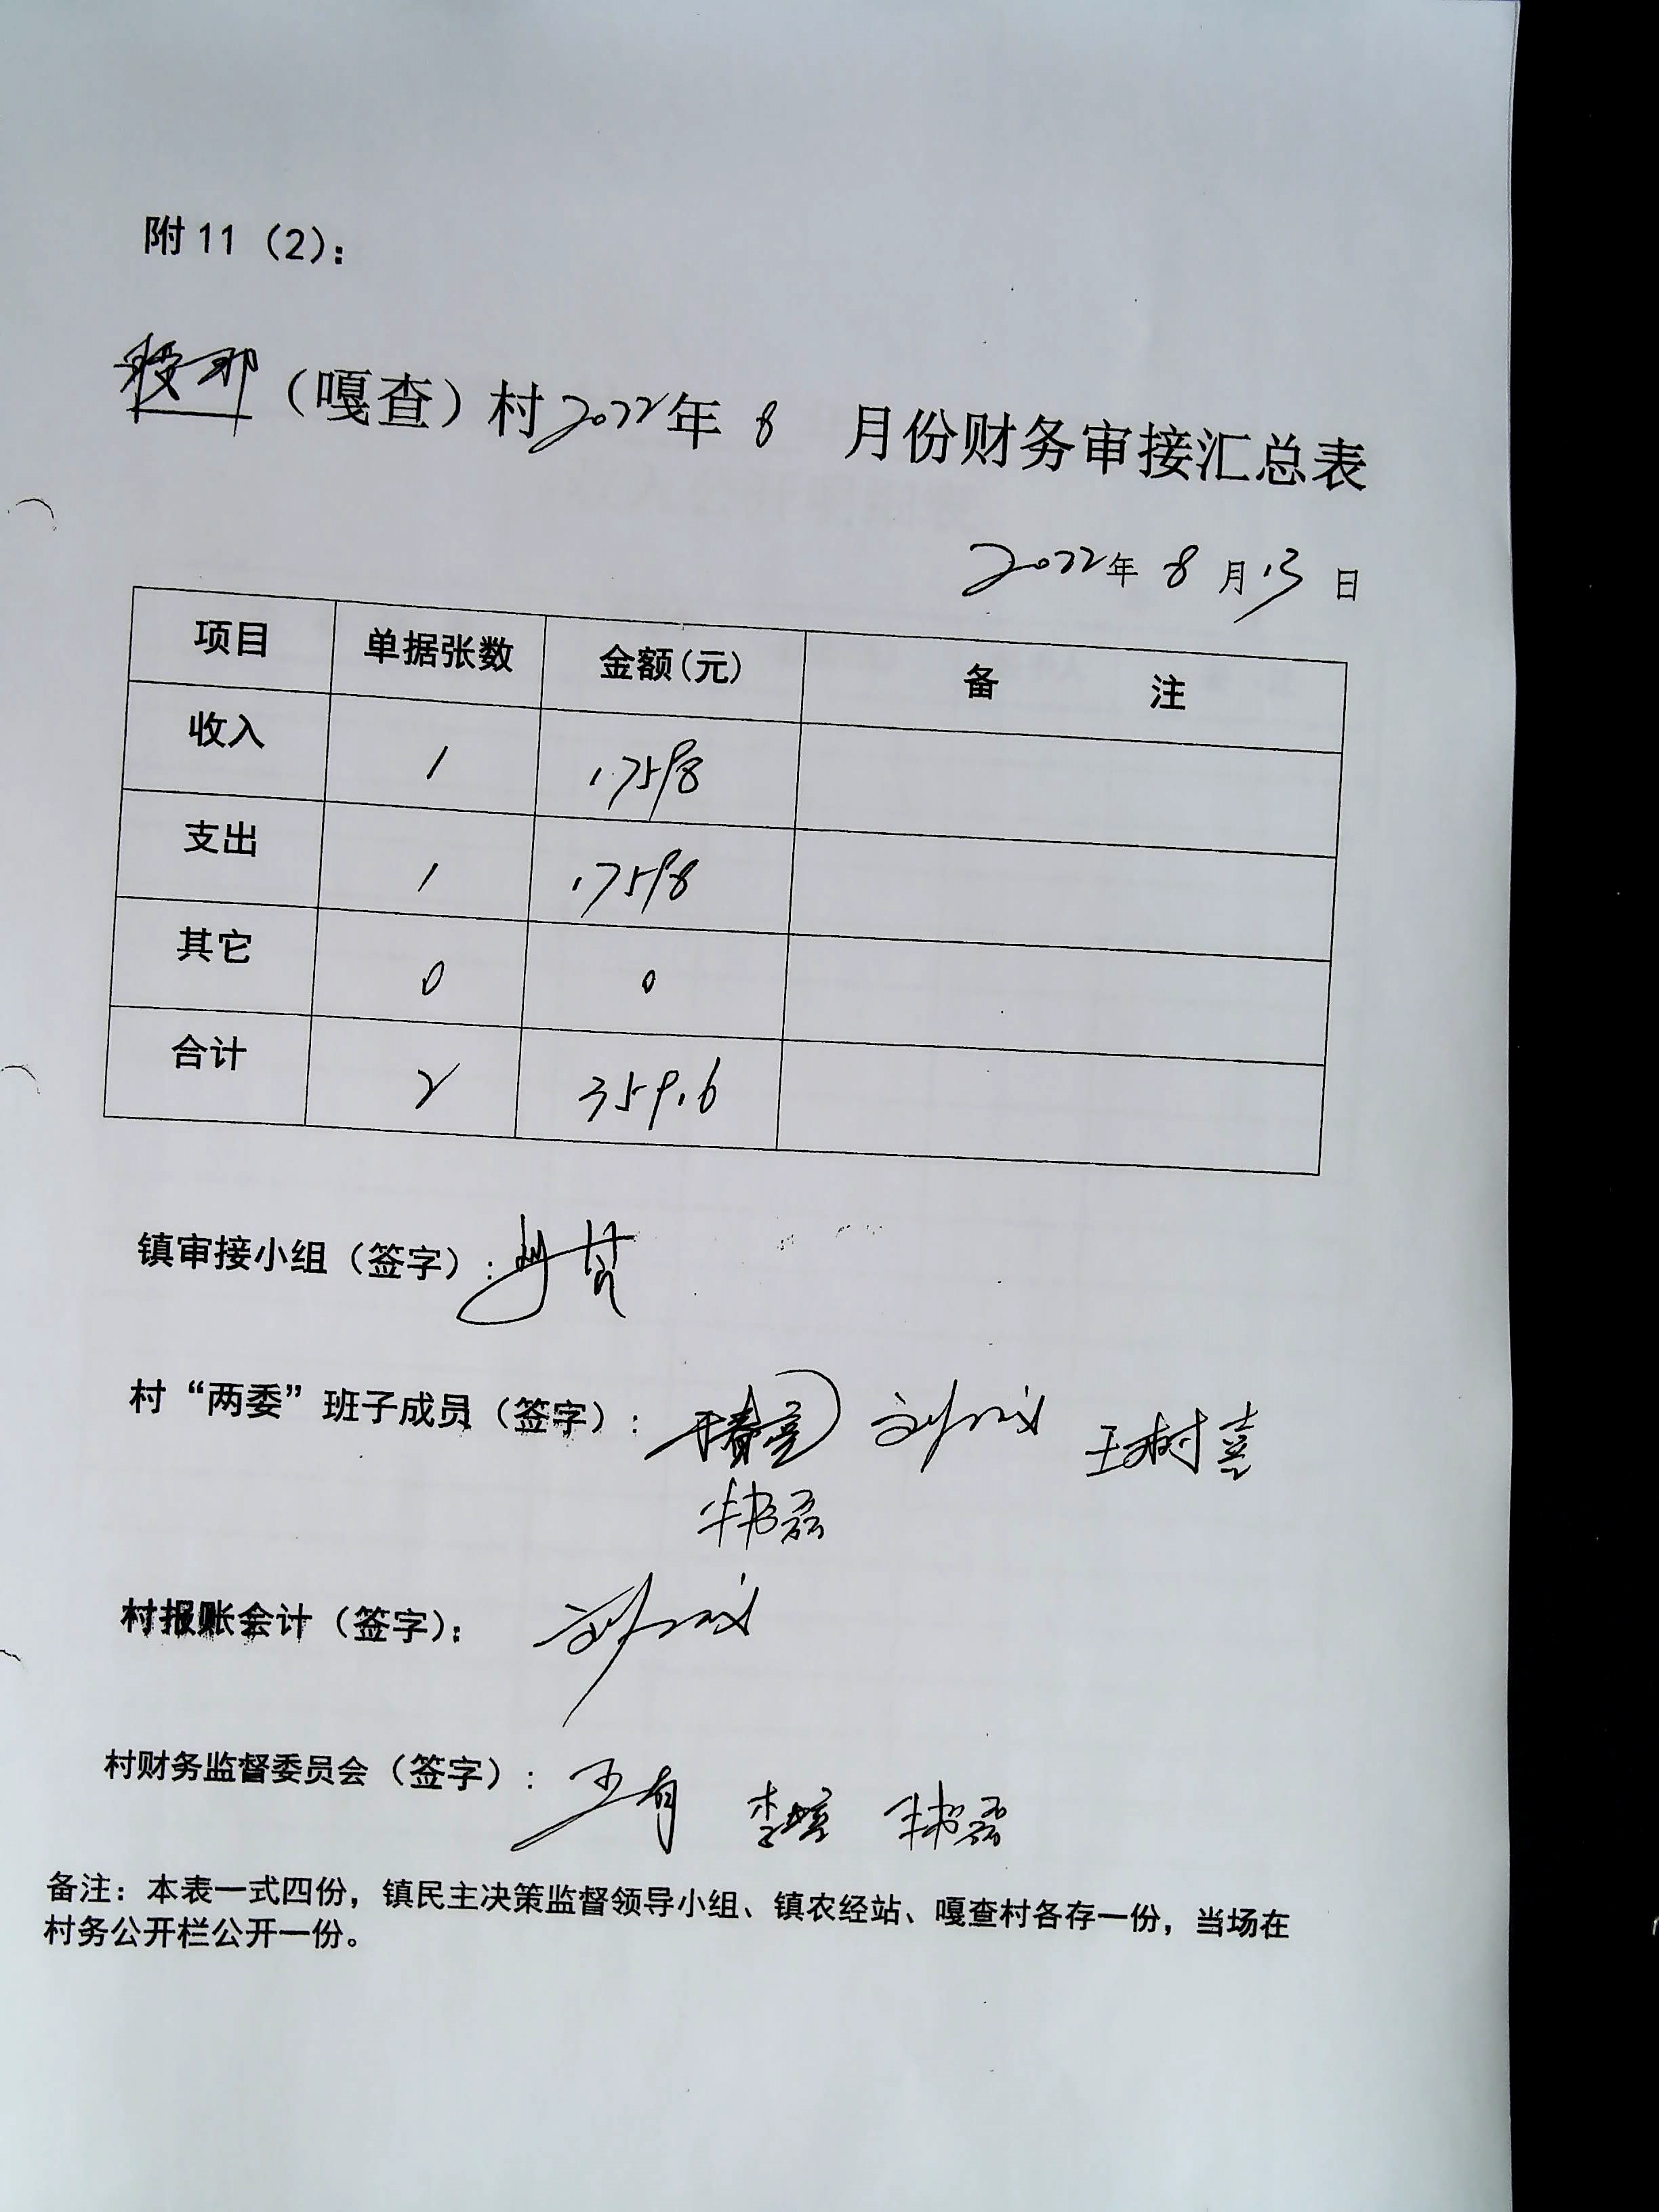 附11（2）：
（嘎查）村2022年8月份财务审接汇总表
2022年8月13日
项目 单据张数 金额(元) 备 注
收入 1
支出 1
其它 0 0
合计 2 359.6
镇审接小组（签字）：
村“两委”班子成员（签字）： 王树喜
村报账会计（签字）：
村财务监督委员会（签字）： 王有
备注：本表一式四份，镇民主决策监督领导小组、镇农经站、嘎查村各存一份，当场在
村务公开栏公开一份。